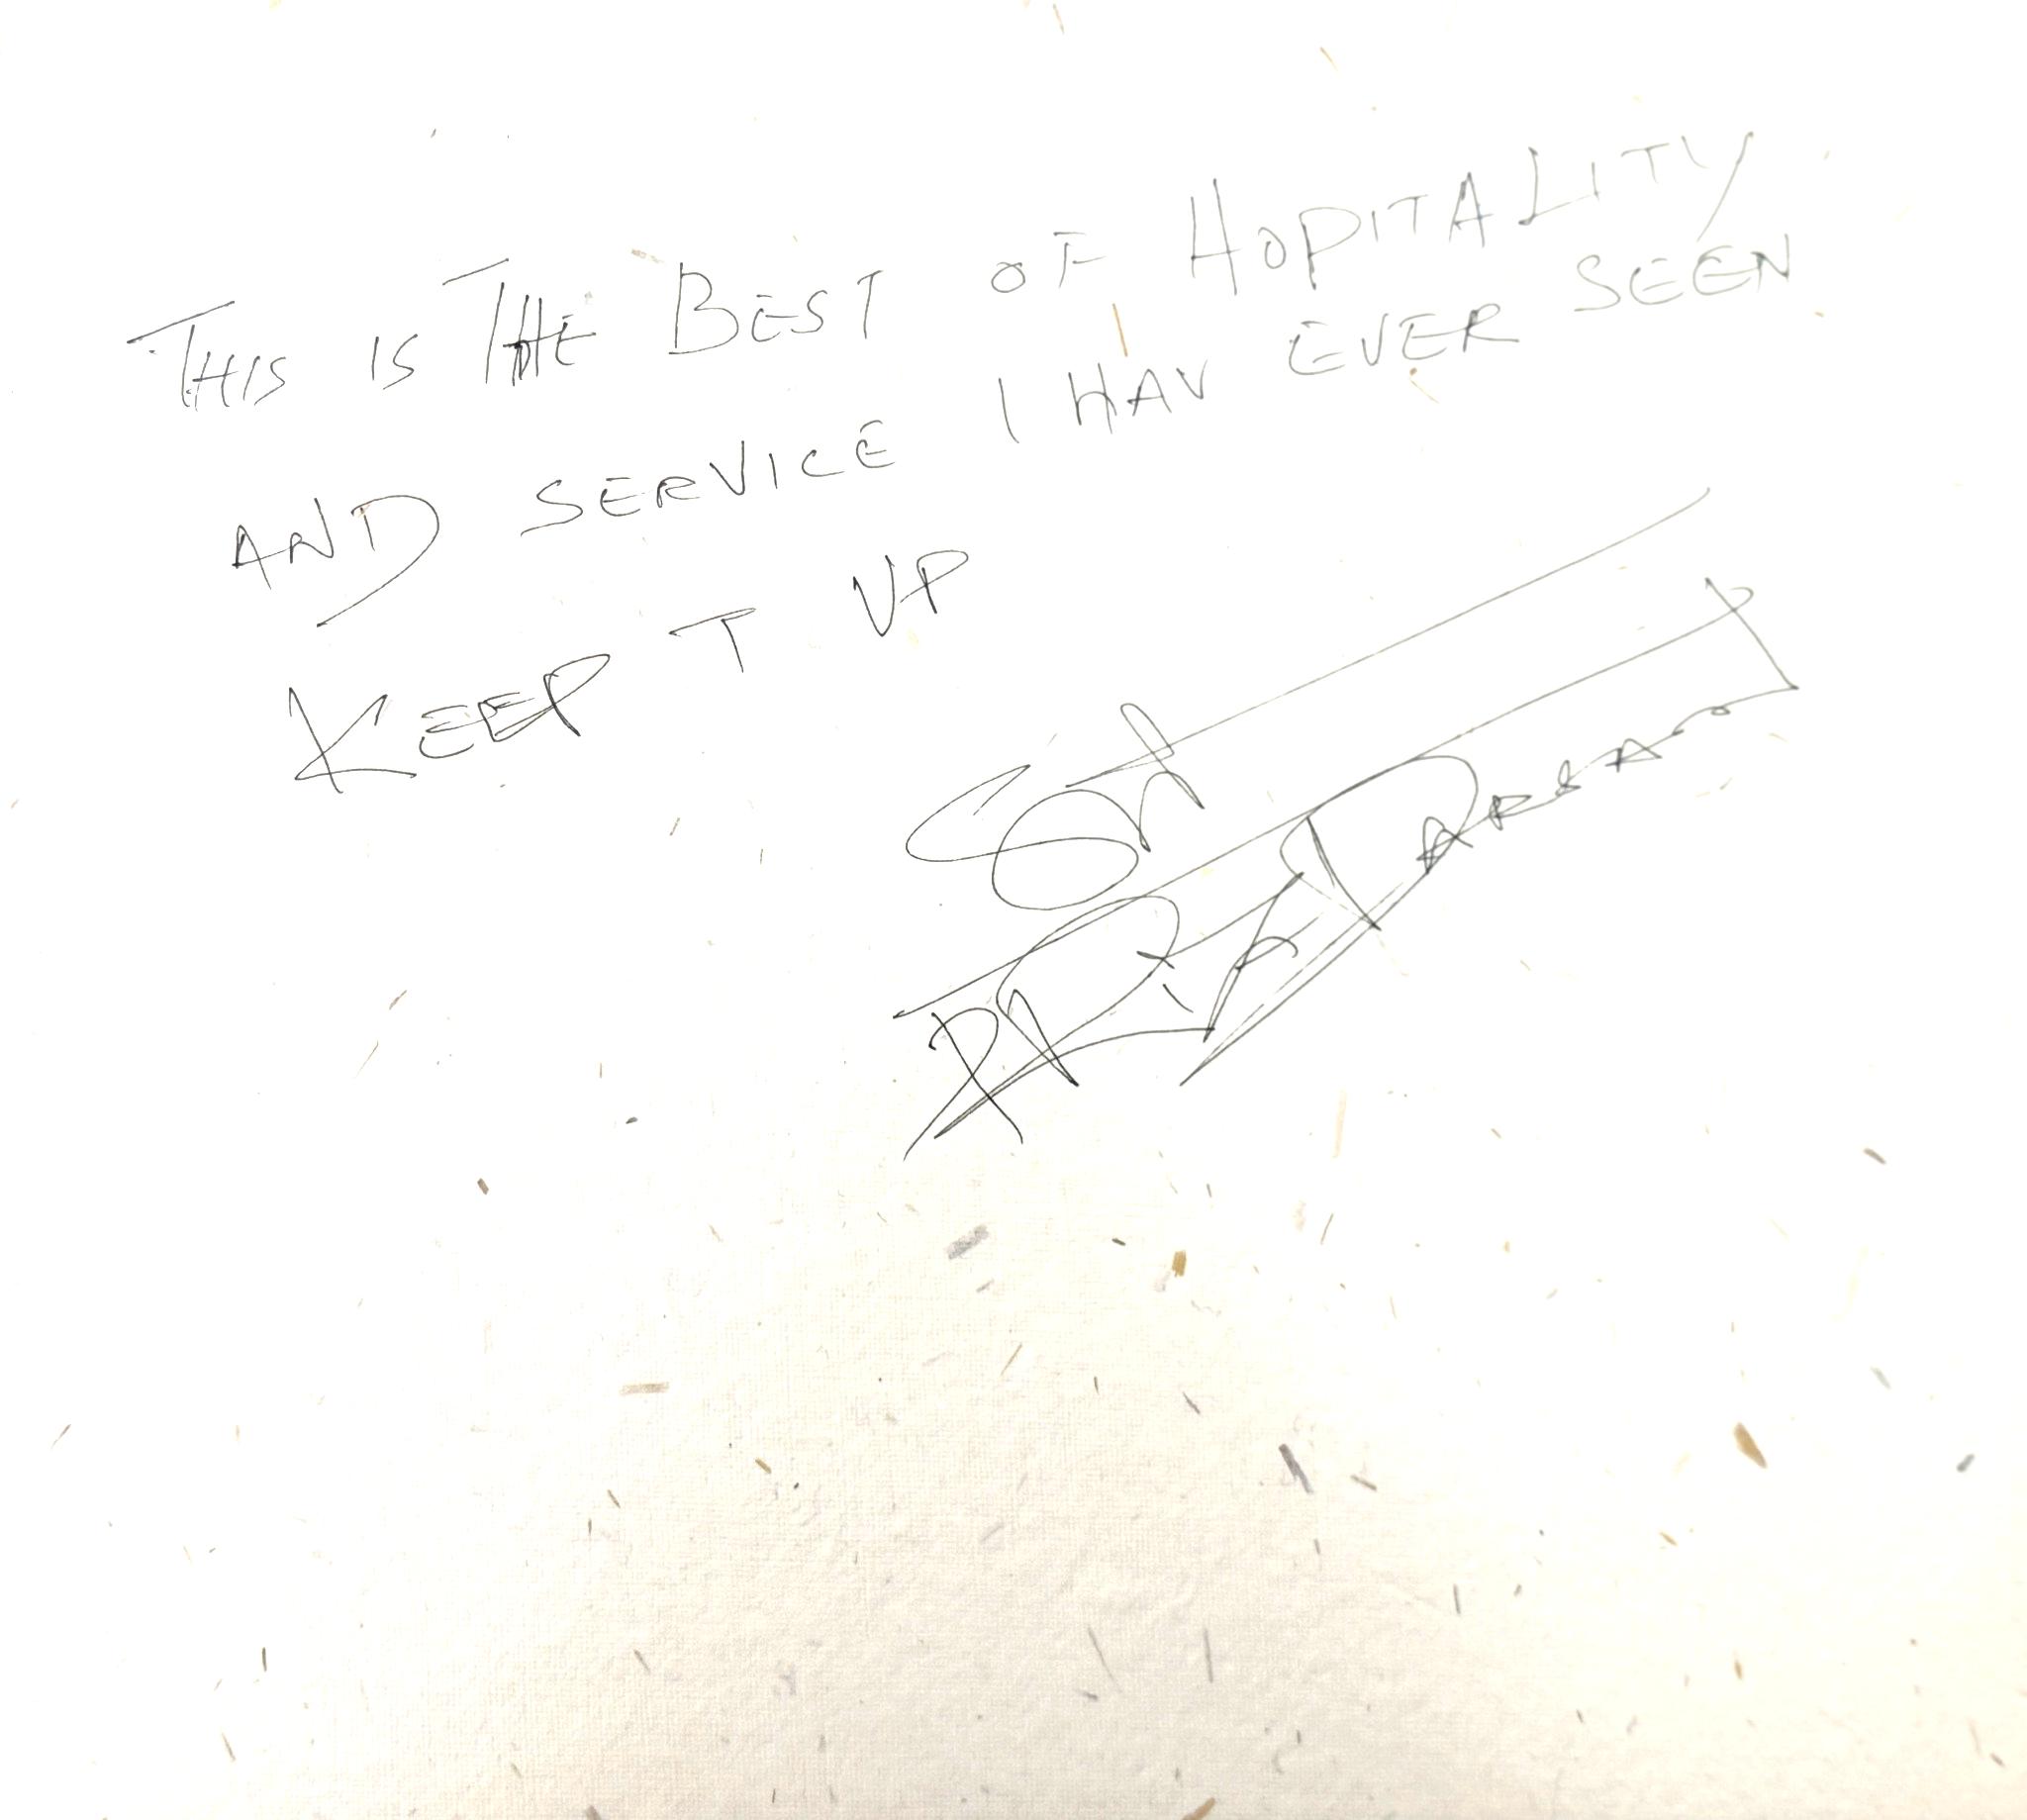 THIS IS THE BEST OF HOPITALITY
AND SERVICE I HAV EVER SEEN
KEEP T UP